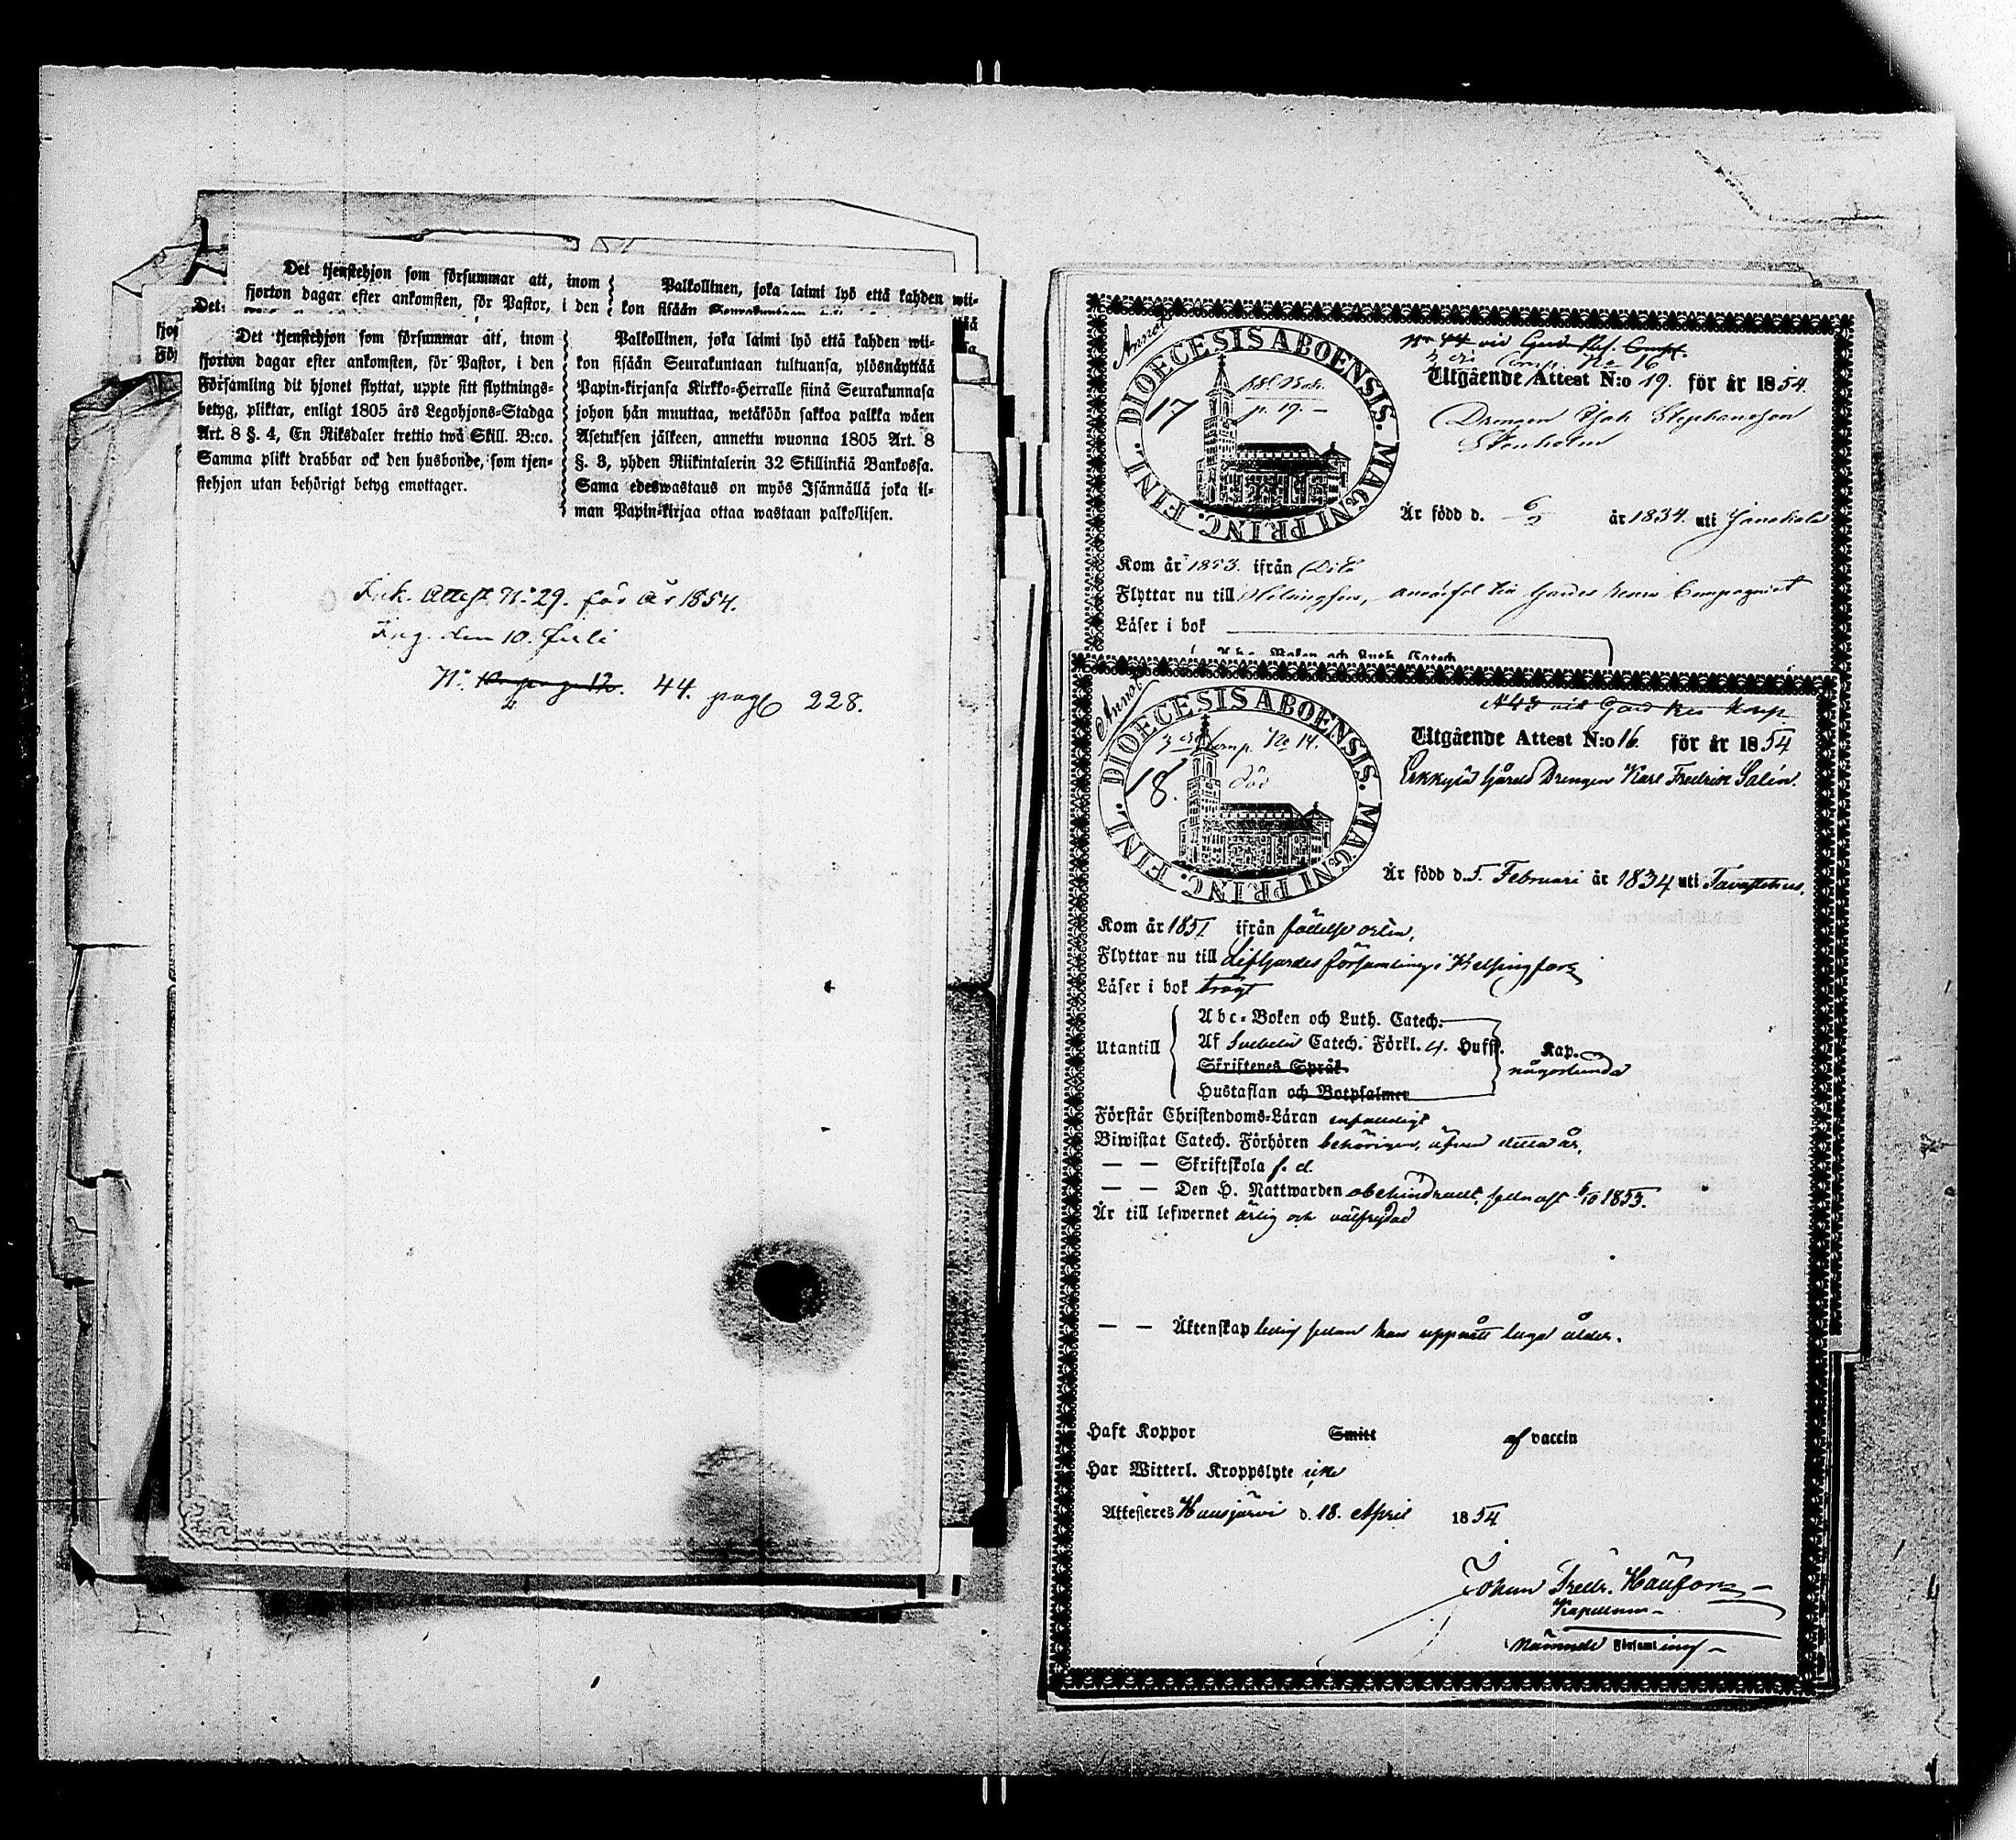 Det tjenstehjon som försummar att, inom
fjorton dagar efter ankomsten, för Pastor, i den
Palkollinen, joka laimi lyö että kahden wii-
kon sisään Seurakuntaan
Det
Det tjenstehjon som försummar att, inom
fjorton dagar efter ankomsten, för Pastor, i den
Församling dit hjonet flyttat, uppte sitt flyttnings-
betyg, pliktar, enligt 1805 års Legohjons-Stadga
Art. 8 §. 4, En Riksdaler trettio twå Skill. B:co.
Samma plikt drabbar ock den husbonde, som tjen-
stehjon utan behörigt betyg emottager.
Palkollinen, joka laimi lyö että kahden wii-
kon sisään Seurakuntaan tultuansa, ylösnäyttää
Papin-kirjansa Kirkko-Herralle siinä Seurakunnasa
johon hän muuttaa, wetäköön sakkoa palkka wäen
Asetuksen jälkeen, annettu wuonna 1805 Art. 8
§. 3, yhden Riikintalerin 32 Skillinkiä Bankossa.
Sama edeswastaus on myös Isännällä joka il-
man Papin-kirjaa ottaa wastaan palkollisen.
Ink. Attest N:o 29. för År 1854.
Ing. den 10. Juli
N:o 44. pag 228.
Annot
DIOECESIS ABOENSIS. MAGNI PRINC. FINL.
17
p. 19.
vid Gard. Res. Comp.
Comp. No 16
Utgående Attest N:o 19. för år 1854.
Drengen Isak Stephansson
Stenholm
Är född d. 6/5 år 1834. uti Janakala
Kom år 1853. ifrån Dito
Flyttar nu till Helsingfors, Gardes Reserv Compagniet
Läser i bok
Abc-Boken och Luth. Catech.
Annot
DIOECESIS ABOENSIS. MAGNI PRINC. FINL.
Comp. No 14.
18.
död
vid Gard Res Komp
Utgående Attest N:o 16. för år 1854
Erkkylä Gårds Drengen Karl Fredrik Salin.
Är född d. 5. Februari år 1834 uti Tavastehus.
Kom år 1851 ifrån födelse orten,
Flyttar nu till Lifgardes församling i Helsingfors
Läser i bok trögt
Utantill
Abc-Boken och Luth. Catech.
Af Svebelii Catech. Förkl. 4. Hufst. Kap.
någorlunda
Skriftenes Språk
Hustaflan och Botpsalmer
Förstår Christendoms-Läran enfaldigt
Biwistat Catech. Förhören behörigen, äfven detta år,
— — Skriftskola f. d.
— — Den H. Nattwarden obehindradt, senast 6/10 1853.
Är till lefwernet ärlig och välfrejdad
— — Äktenskap ledig sedan han uppnått laga ålder.
Haft Koppor Smitt af vaccin
Har Witterl. Kroppslyte icke
Attesteres Hausjärvi d. 18. April 1854
Johan Fredr.
Kapellan
Nämnde Församling